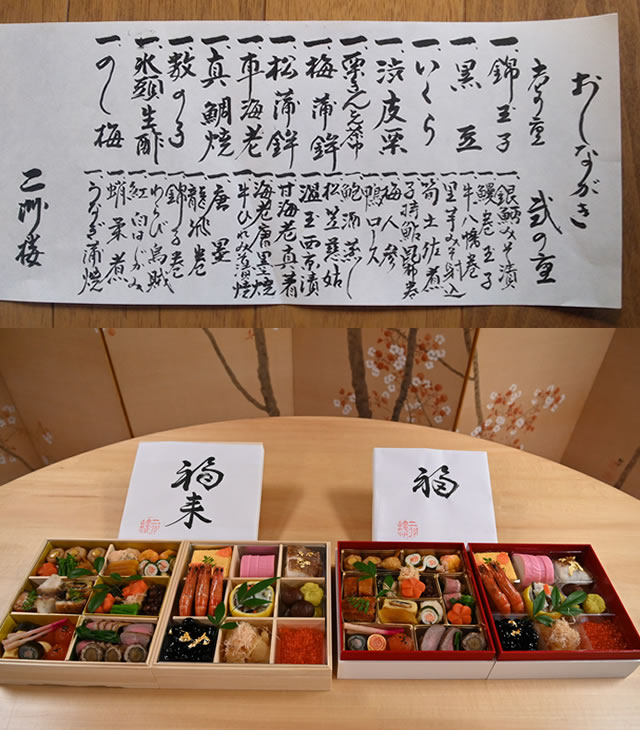 おしながき
壱の重
一、錦玉子
一、黒豆
一、いくら
一、渋皮栗
一、栗きんとん
一、梅蒲鉾
一、松蒲鉾
一、車海老
一、真鯛焼
一、数の子
一、氷頭生酢
一、のし梅
弐の重
一、銀鱈みそ漬
一、鰻巻玉子
一、牛八幡巻
一、里芋みそ射込
一、筍土佐煮
一、子持鮎昆布巻
一、梅人参
一、鴨ロース
一、鮑酒蒸し
一、松笠慈姑
一、温玉西京漬
一、甘海老真蒸
一、海老唐墨焼
一、牛ひれみそ漬焼
一、唐墨
一、龍飛巻
一、錦子巻
一、わらび烏賊
一、紅白はじかみ
一、蛸柔煮
一、うなぎ蒲焼
二州楼
福来
福